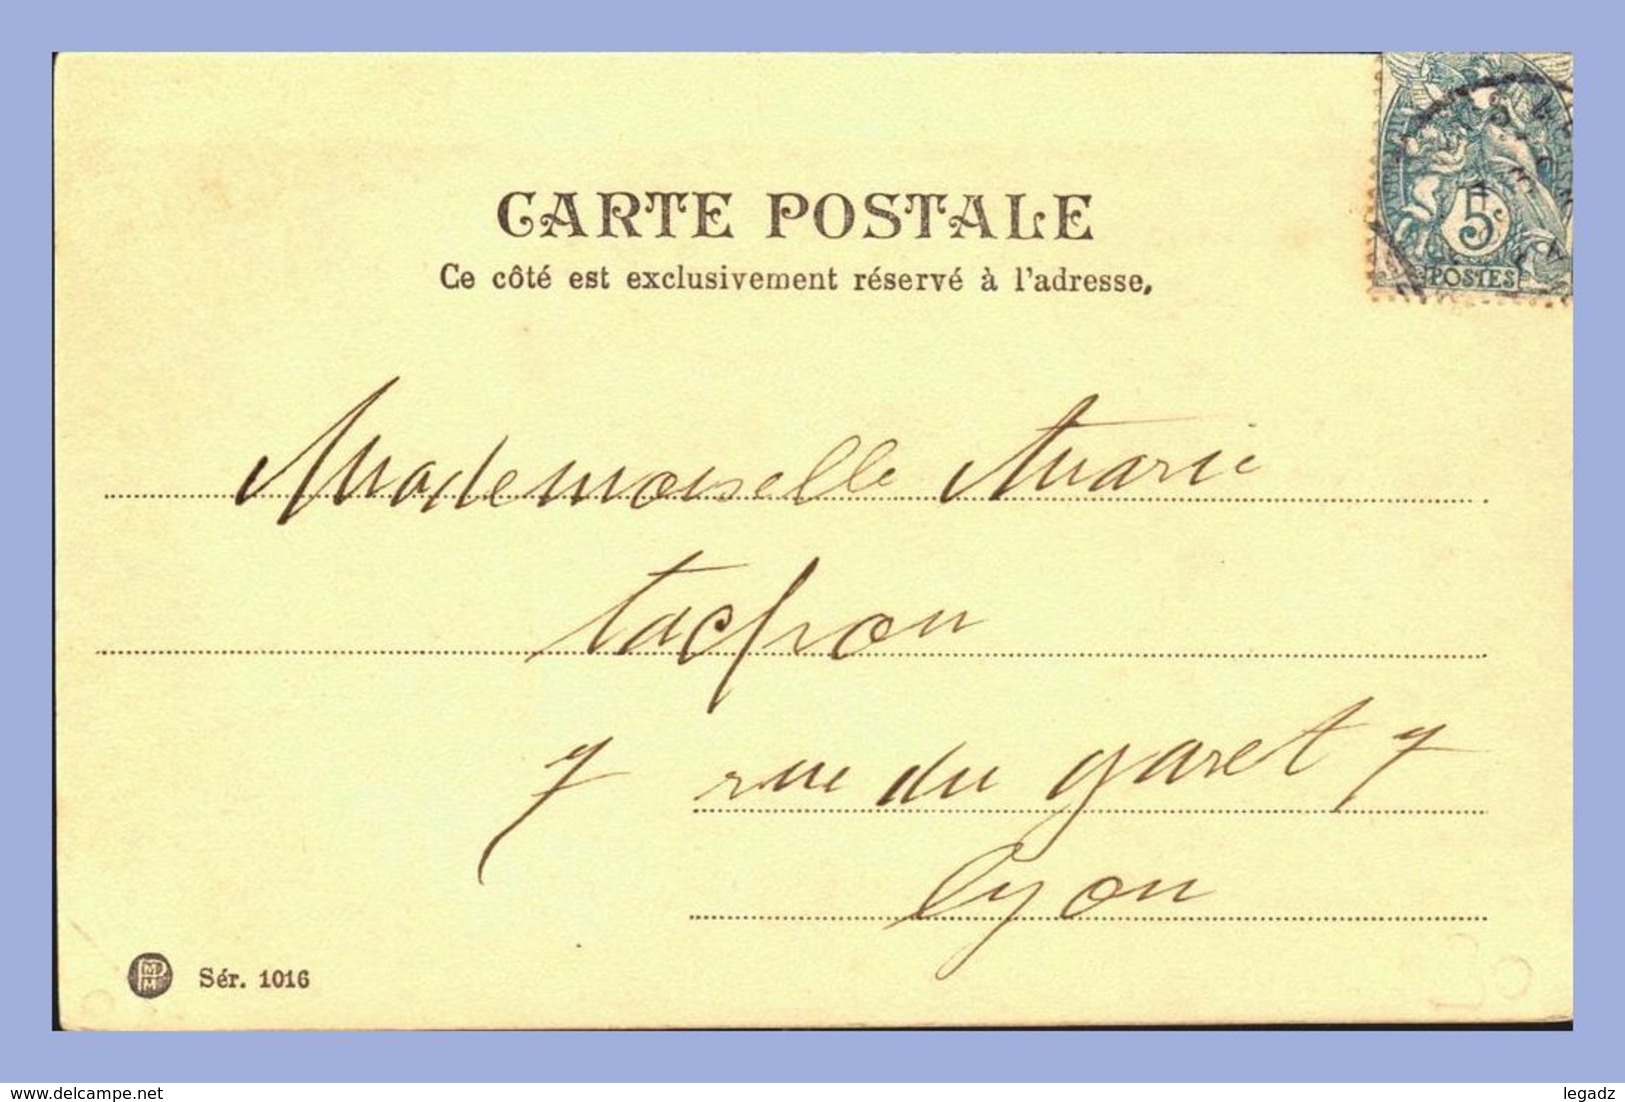 CARTE POSTALE
Ce côté est exclusivement réservé à l'adresse.
5c
POSTES
Mademoiselle Marie
tachon
7 rue du garet 7
lyon
Sér. 1016
www.delcampe.net
legadz